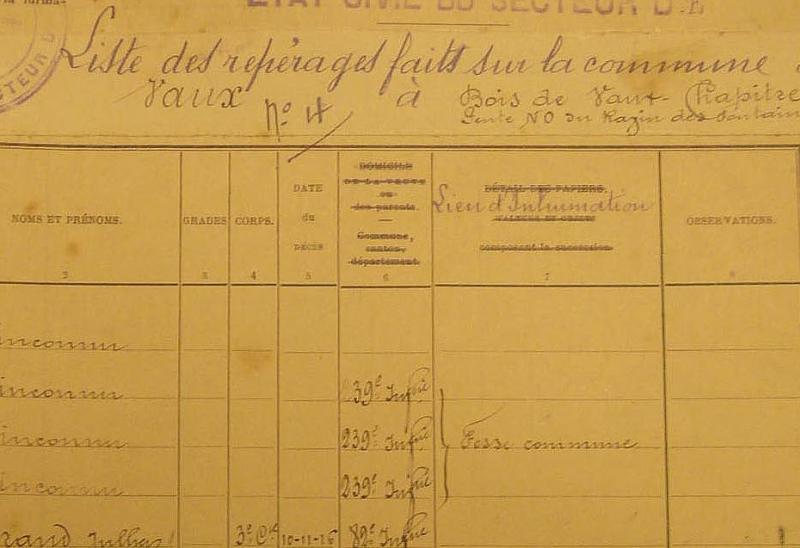 ETAT CIVIL DU SECTEUR D.E
Liste des repérages faits sur la commune
Vaux n° 4 à Bois de Vaux-Chapitre
Pente NO du Ravin des
NOMS ET PRÉNOMS. GRADES CORPS. DATE du DÉCÈS DOMICILE DE LA VEUVE ou des parents. — Commune, canton, département. DÉTAIL DES PAPIERS, VALEURS ET OBJETS composant la succession Lieu d'Inhumation OBSERVATIONS.
2 3 4 5 6 7 8
inconnu
inconnu 39e Infrie
inconnu 239e Infrie Fosse commune
inconnu 239e Infrie
3e Cie 10-11-16 82e Infrie